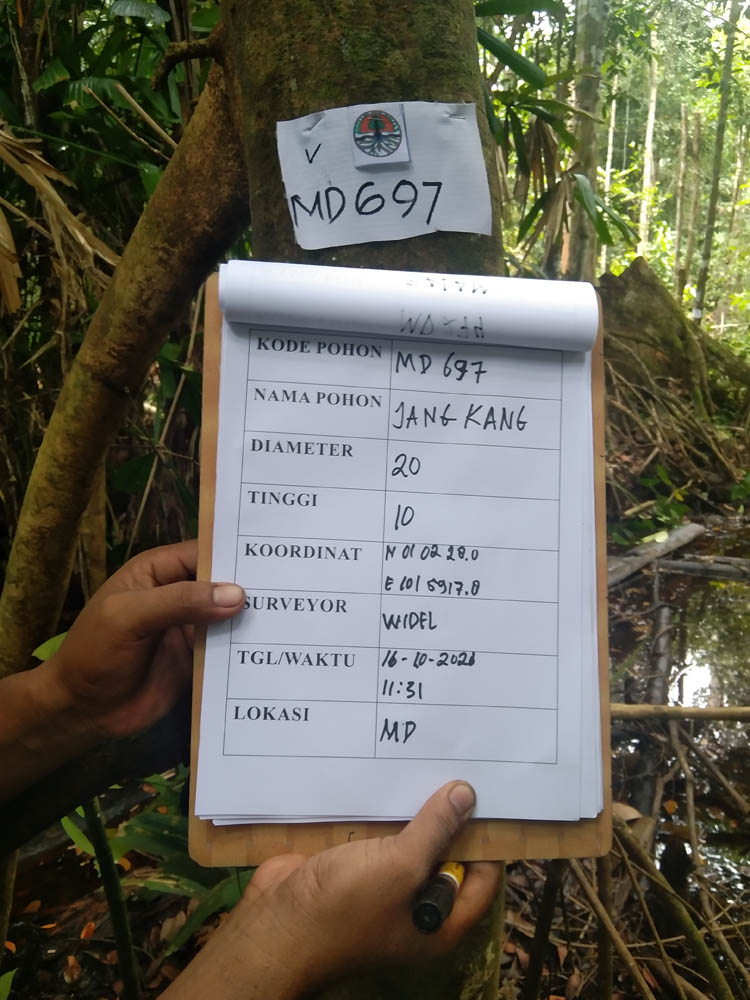 V
MD697
KODE POHON MD 697
NAMA POHON JANG KANG
DIAMETER 20
TINGGI 10
KOORDINAT N 01 02 28.0
E 101 5917.8
SURVEYOR WIDEL
TGL/WAKTU 16-10-2021
11:31
LOKASI MD